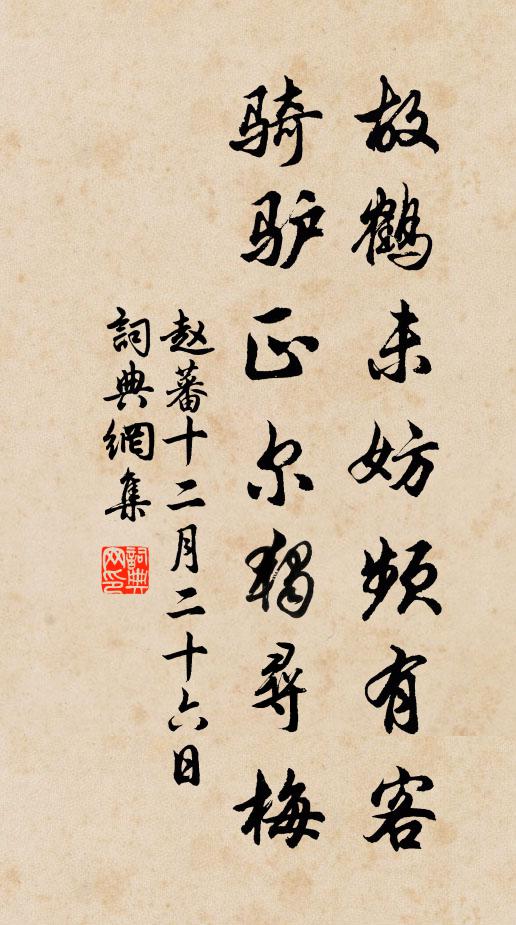 故鹤未妨频有客
骑驴正尔独寻梅
赵蕃十二月二十六日
詞典網集
詞典网印